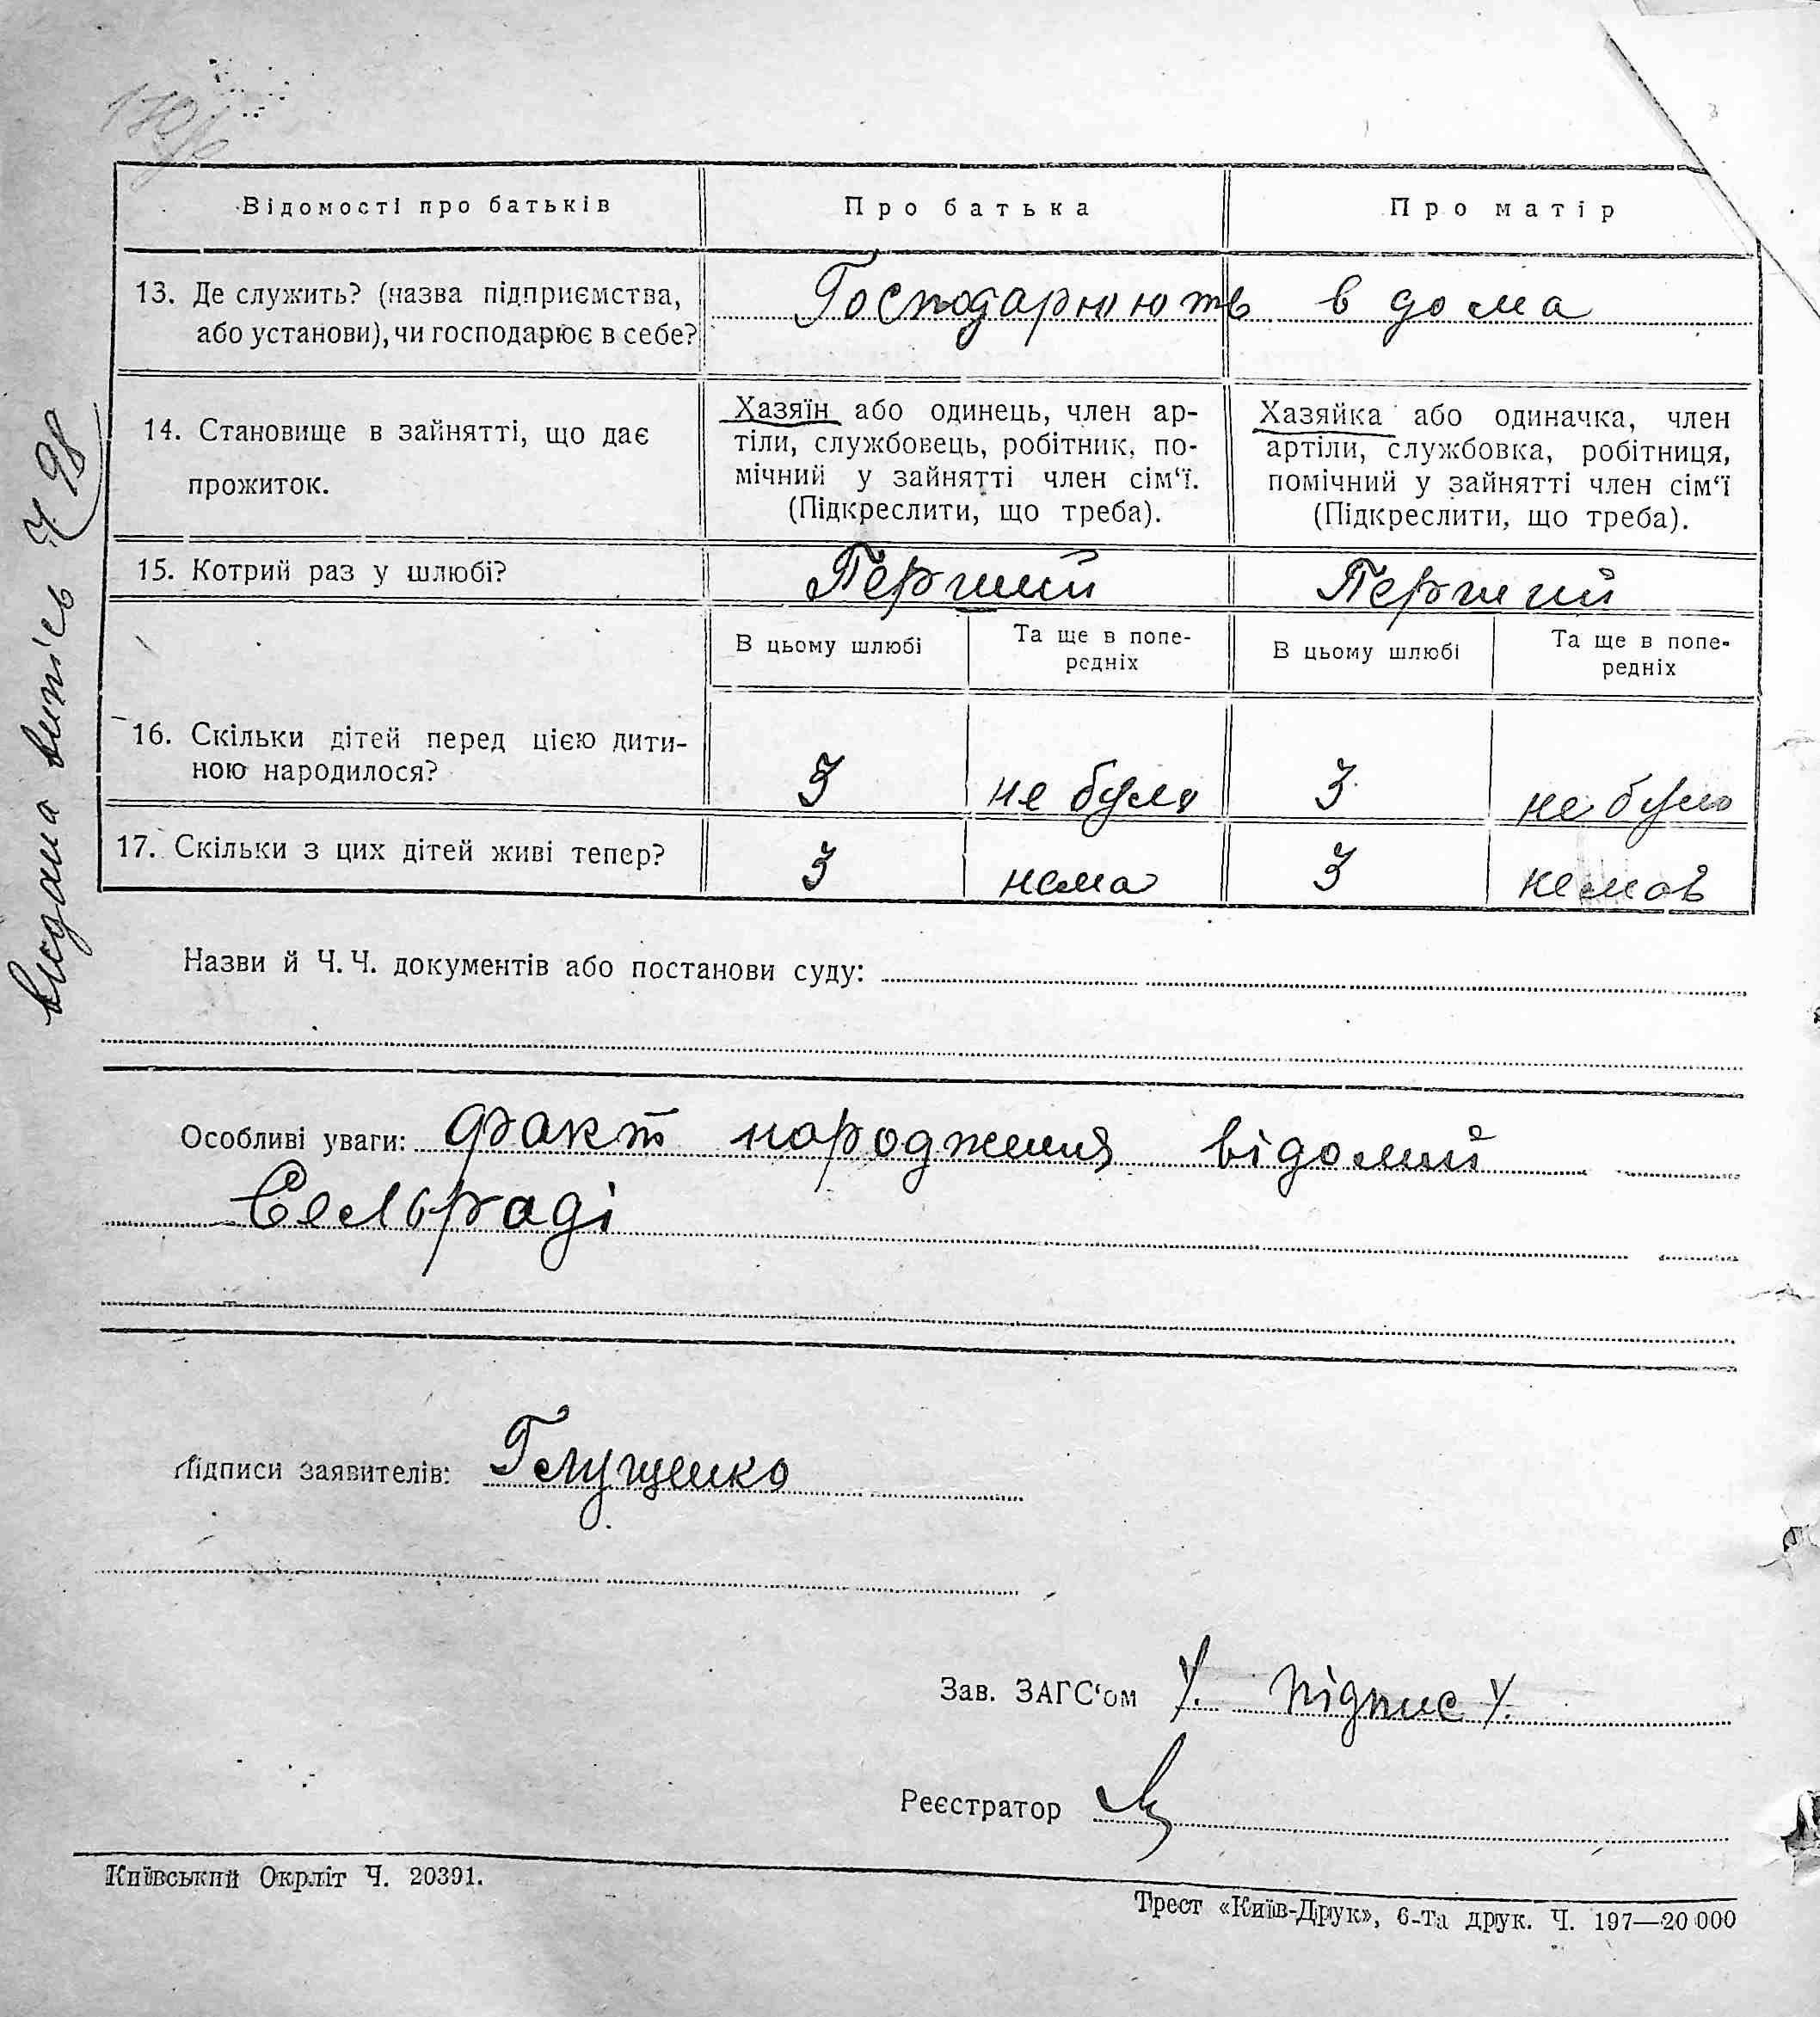 Відомості про батьків
Про батька
Про матір
13. Де служить? (назва підприємства,
або установи), чи господарює в себе?
Господарюють в дома
14. Становище в зайнятті, що дає
прожиток.
Хазяїн або одинець, член ар-
тіли, службовець, робітник, по-
мічний у зайнятті член сім‘ї.
(Підкреслити, що треба).
Хазяйка або одиначка, член
артіли, службовка, робітниця,
помічний у зайнятті член сім‘ї
(Підкреслити, що треба).
15. Котрий раз у шлюбі?
Перший
Перший
В цьому шлюбі
Та ще в попе-
редніх
В цьому шлюбі
Та ще в попе-
редніх
16. Скільки дітей перед цією дити-
ною народилося?
3
не було
3
не було
17. Скільки з цих дітей живі тепер?
3
нема
3
немає
видана випись Ч 98
Назви й Ч. Ч. документів або постанови суду:
Особливі уваги: Факт народження відомий
Сельраді
Підписи заявителів: Глущенко
Зав. ЗАГС‘ом підпис
Реєстратор
Київський Окрліт Ч. 20391.
Трест «Київ-Друк», 6-та друк. Ч. 197—20 000